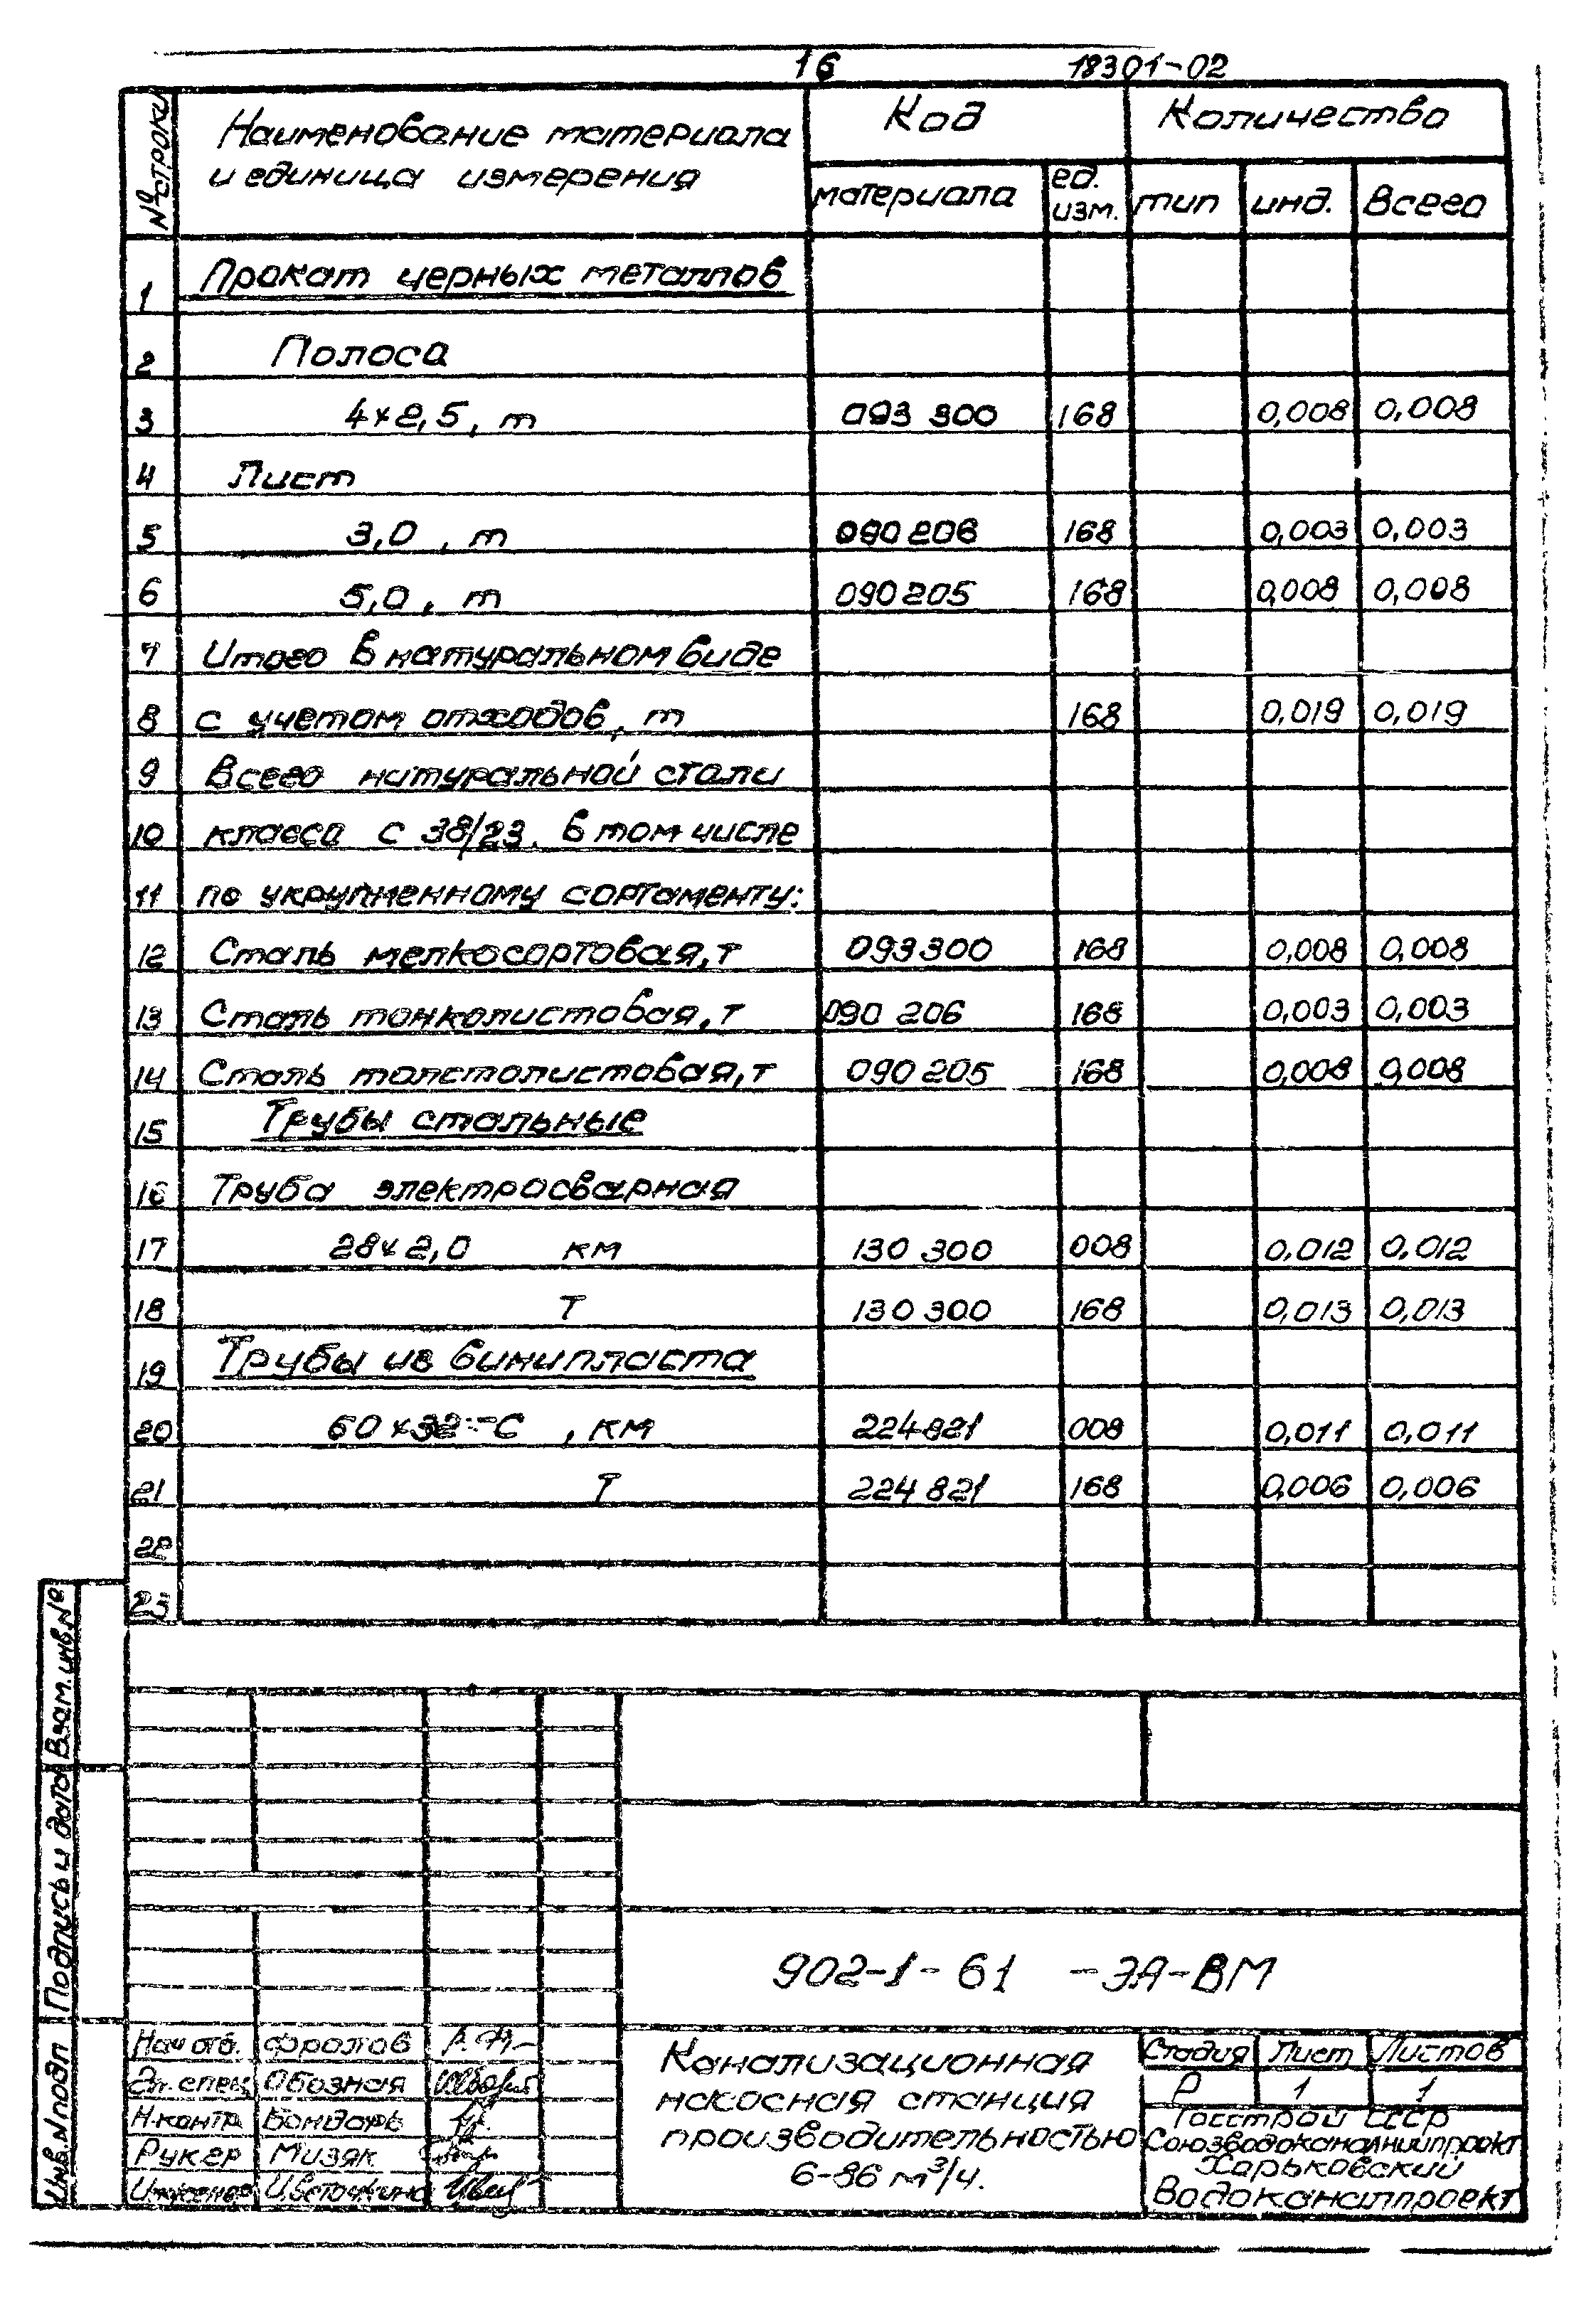 16 18301-02
№ строки
Наименование материала
и единица измерения
Код
Количество
материала
ед. изм.
тип
инд.
Всего
1 Прокат черных металлов
2 Полоса
3 4×2,5, т 093 300 168 0,008 0,008
4 Лист
5 3,0, т 090 206 168 0,003 0,003
6 5,0, т 090 205 168 0,008 0,008
7 Итого в натуральном виде
8 с учетом отходов, т 168 0,019 0,019
9 Всего натуральной стали
10 класса с 38/23. в том числе
11 по укрупненному сортаменту:
12 Сталь мелкосортовая, т 093300 168 0,008 0,008
13 Сталь тонколистовая, т 090 206 168 0,003 0,003
14 Сталь толстолистовая, т 090 205 168 0,008 0,008
15 Трубы стальные
16 Труба электросварная
17 28×2,0 км 130 300 008 0,012 0,012
18 т 130 300 168 0,013 0,013
19 Трубы из винипласта
20 60×32-С, км 224821 008 0,011 0,011
21 т 224 821 168 0,006 0,006
22
23
Взам. инв. №
Подпись и дата
Инв. N подл
902-1-61 -ЭА-ВМ
Нач отд. Фролов
Гл. спец Обозная
Н. контр Бондарь
Рук. гр Мизяк
Инженер Цветочкина
Канализационная
насосная станция
производительностью
6-86 м³/ч.
Стадия Лист Листов
Р 1 1
Госстрой СССР
Союзводоканалниипроект
Харьковский
Водоканалпроект